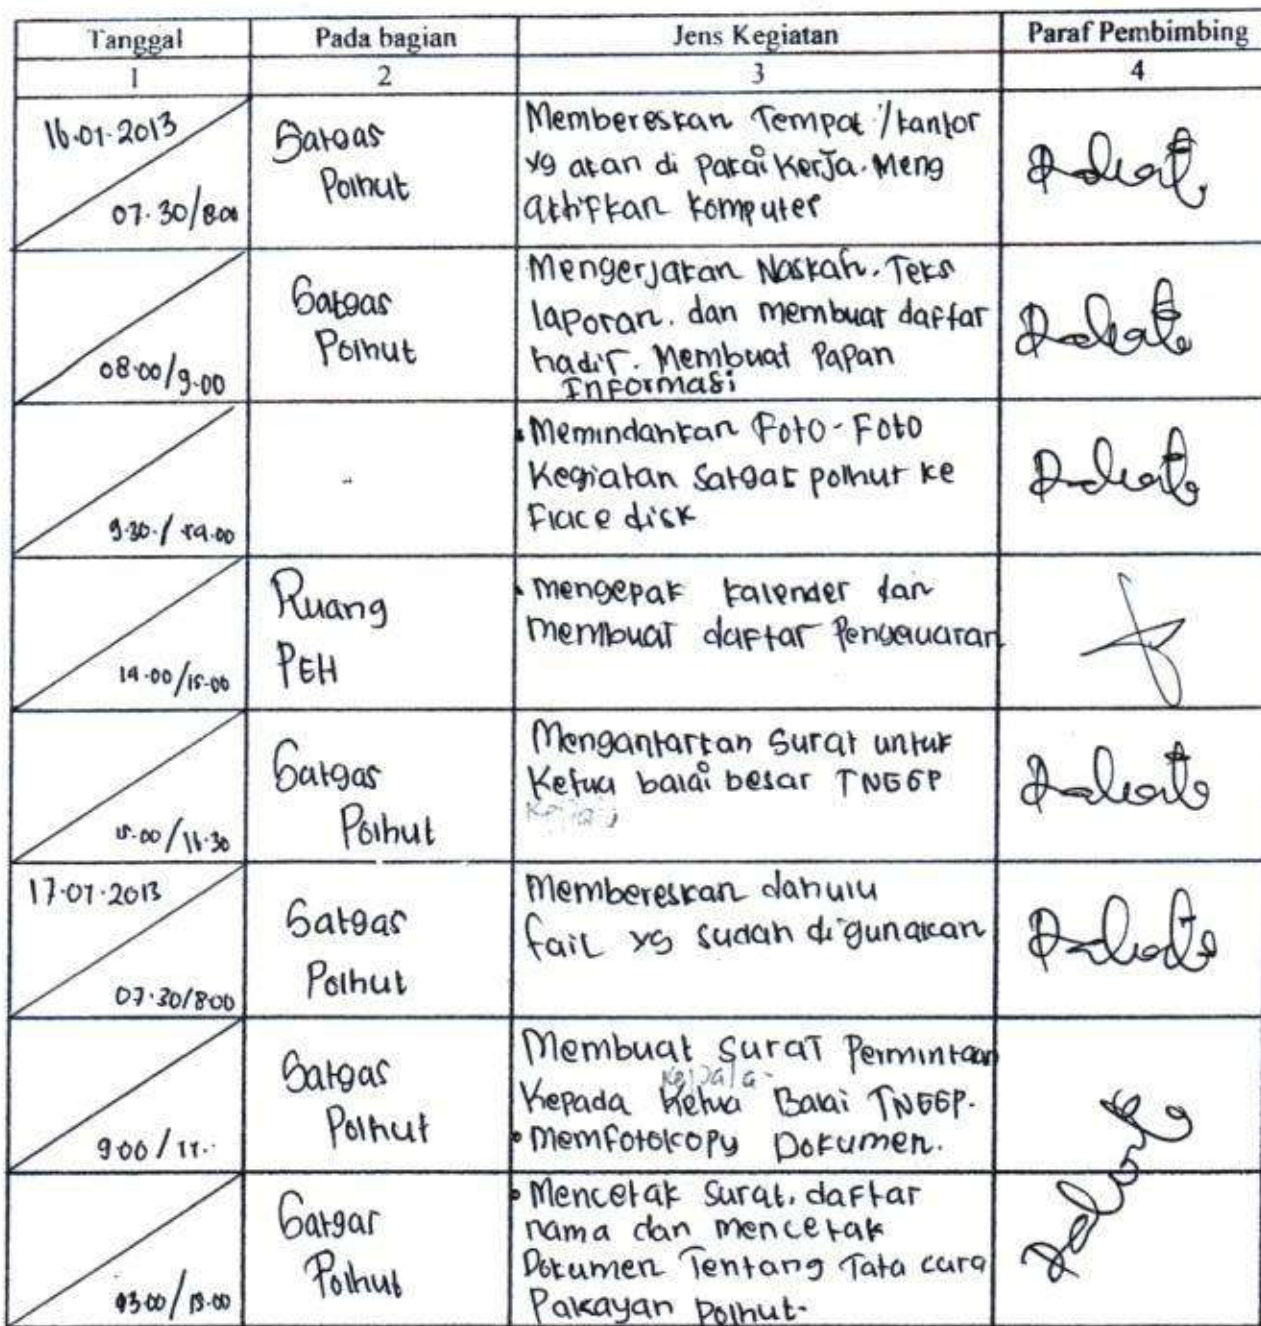 Tanggal Pada bagian Jens Kegiatan Paraf Pembimbing
1 2 3 4
16-01-2013
07.30/8.00
Satgas
Polhut
Membereskan Tempat /kantor
yg akan di Pakai Kerja. Meng
aktifkan komputer
08.00/9.00
Satgas
Polhut
Mengerjakan Naskah. Teks
laporan. dan membuat daftar
hadir. Membuat Papan
Informasi
9.30 /
Memindahkan Foto-Foto
Kegiatan Satgas polhut ke
Flace disk
14.00/15.00
Ruang
PEH
mengepak kalender dan
membuat daftar
15.00/16.30
Satgas
Polhut
Mengantarkan Surat untuk
Ketua balai besar TNGGP
17-01-2013
07.30/8.00
Satgas
Polhut
Membereskan dahulu
fail yg sudah digunakan
9.00/11..
Satgas
Polhut
Membuat Surat Permintaan
kepala
Kepada Ketua Balai TNGGP.
Memfotokopy Dokumen.
13.00
Satgas
Polhut
Mencetak Surat, daftar
nama dan mencetak
Dokumen Tentang Tata cara
Pakayan Polhut-